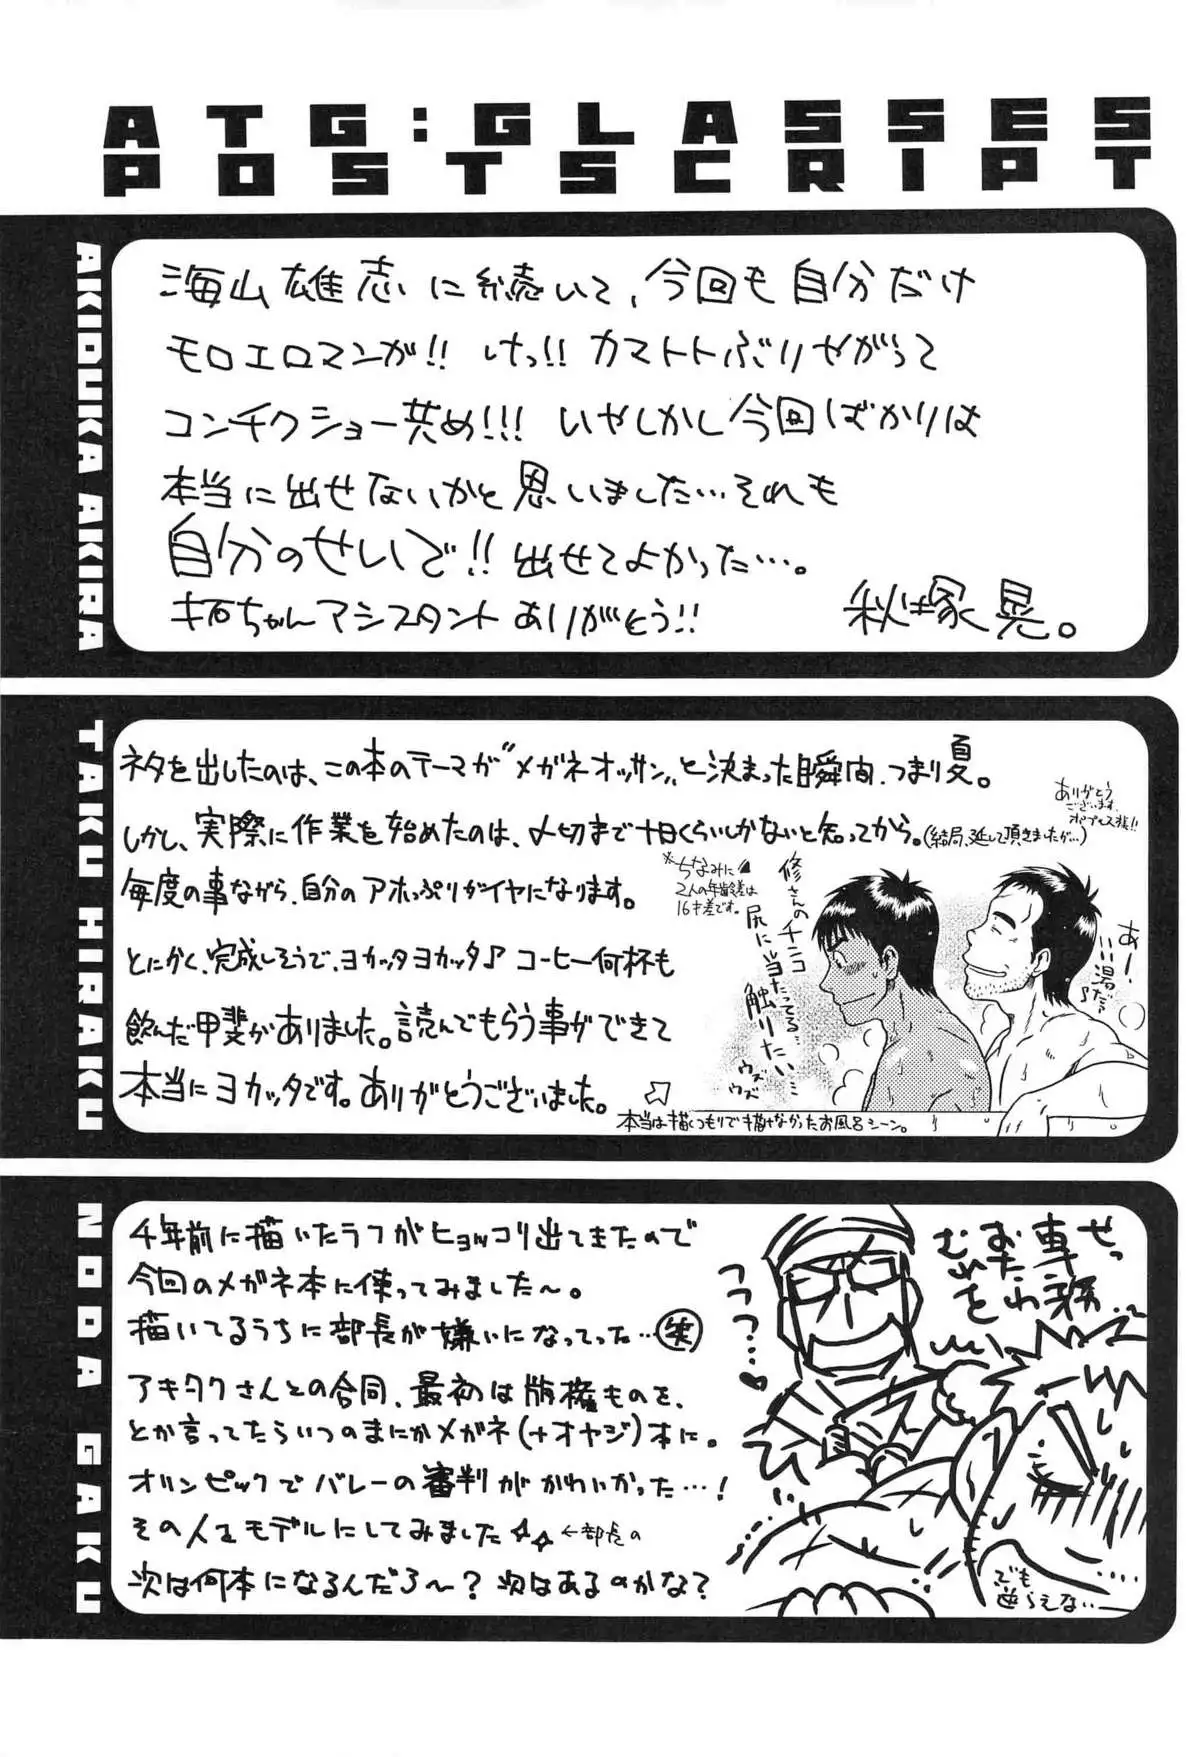 ATG:GLASSES
POSTSCRIPT
AKIDUKA AKIRA
海山雄志に続いて、今回も自分だけ
モロエロマンが!! けっ!! カマトトぶりやがって
コンチクショー共め!!! いやしかし今回ばかりは
本当に出せないかと思いました…それも
自分のせいで!! 出せてよかった…。
キ石ちゃんアシスタントありがとう!!
秋塚晃。
TAKU HIRAKU
ネタを出したのは、この本のテーマが"メガネオッサン"と決まった瞬間、つまり夏。
しかし、実際に作業を始めたのは、〆切まで十日くらいしかないと知ってから。(結局、延して頂きましたが…)
ありがとう
ございます。
毎度の事ながら、自分のアホっぷりがイヤになります。
とにかく、完成しそうで、ヨカッタヨカッタ♪ コーヒー何杯も
飲んだ甲斐がありました。読んでもらう事ができて
本当にヨカッタです。ありがとうございました。
※ちなみに
2人の年齢差は
16才差です。
修さんのチンコ
尻に当たってる…
触りたい…
ウズ
ウズ
あー!
いい湯だ♪
本当は描くつもりで描けなかったお風呂シーン。
NODA GAKU
4年前に描いたラフがヒョッコリ出てきたので
今回のメガネ本に使ってみました〜。
描いてるうちに部長が嫌いになってった…(笑)
アキタクさんとの合同、最初は版権ものを、
とか言ってたらいつのまにかメガネ(+オヤジ)本に。
オリンピックでバレーの審判がかわいかった…!
その人をモデルにしてみました☆☆ ←部長の
次は何本になるんだろ〜? 次はあるのかな?
つつつ…♥
せっ
専務…
おたわ
むれを
でも
逆らえない…